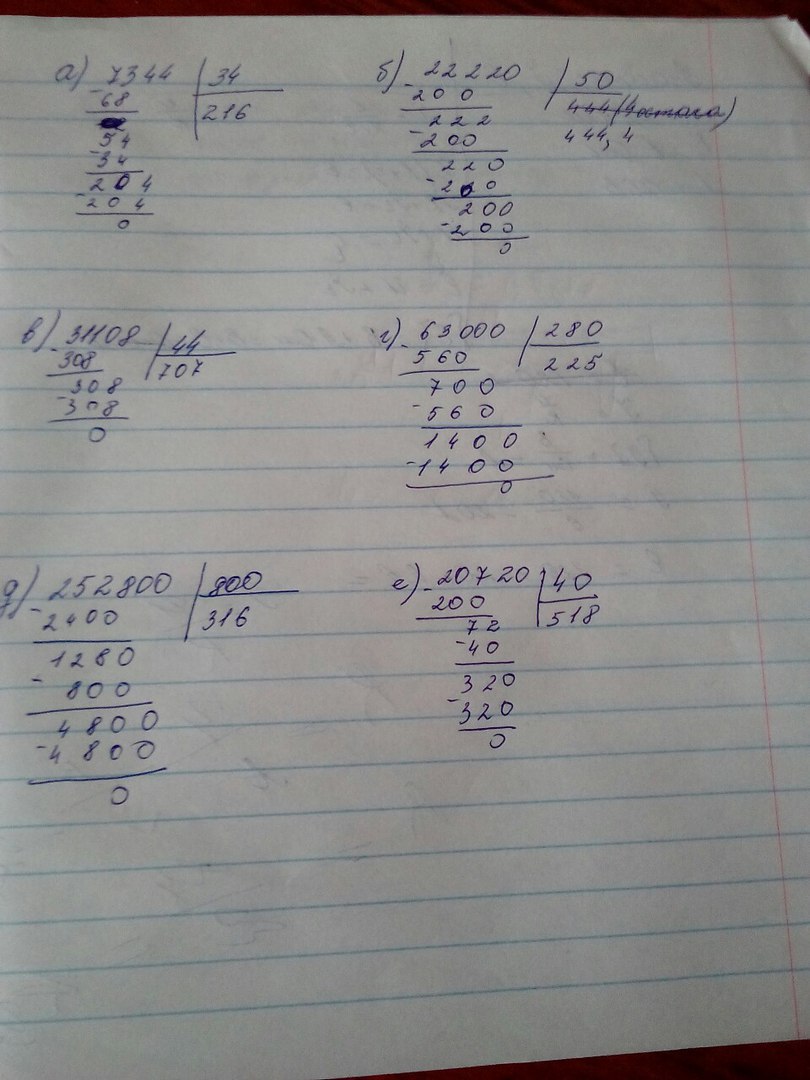 а) 7344 | 34
- 68 | 216
54
- 34
204
- 204
0
б) - 22220 | 50
200 444
222 444,4
- 200
220
- 200
200
- 200
0
в) 31108 | 44
- 308 | 707
308
- 308
0
г) 63000 | 280
- 560 | 225
700
- 560
1400
- 1400
0
д) 252800 | 800
- 2400 | 316
1280
- 800
4800
- 4800
0
е) - 20720 | 40
200 | 518
72
- 40
320
- 320
0